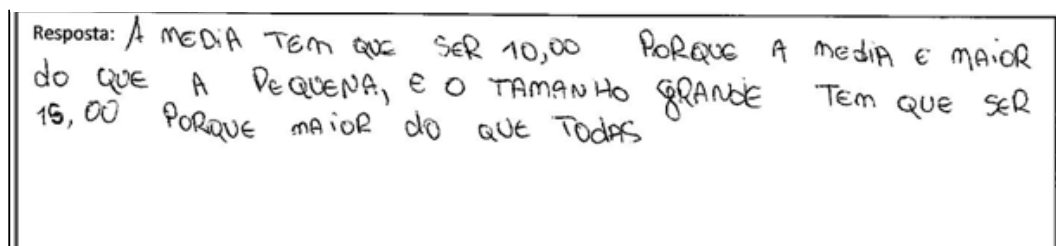 Resposta: A MEDIA TEM QUE SER 10,00 PORQUE A MEDIA E MAIOR
do QUE A PEQUENA, E O TAMANHO GRANDE TEM QUE SER
15,00 PORQUE MAIOR do QUE TODAS